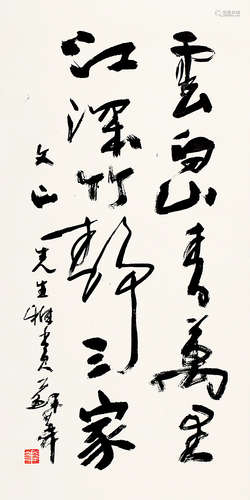 雲白山青萬里
江深竹靜三家
文山先生雅賞